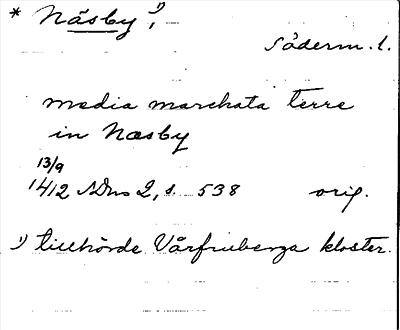 * Näsby 1),
Söderm. l.
media marchata terre
in Næsby
13/9
1412 SDns 2, s. 538 orig.
1) tillhörde Vårfruberga kloster.